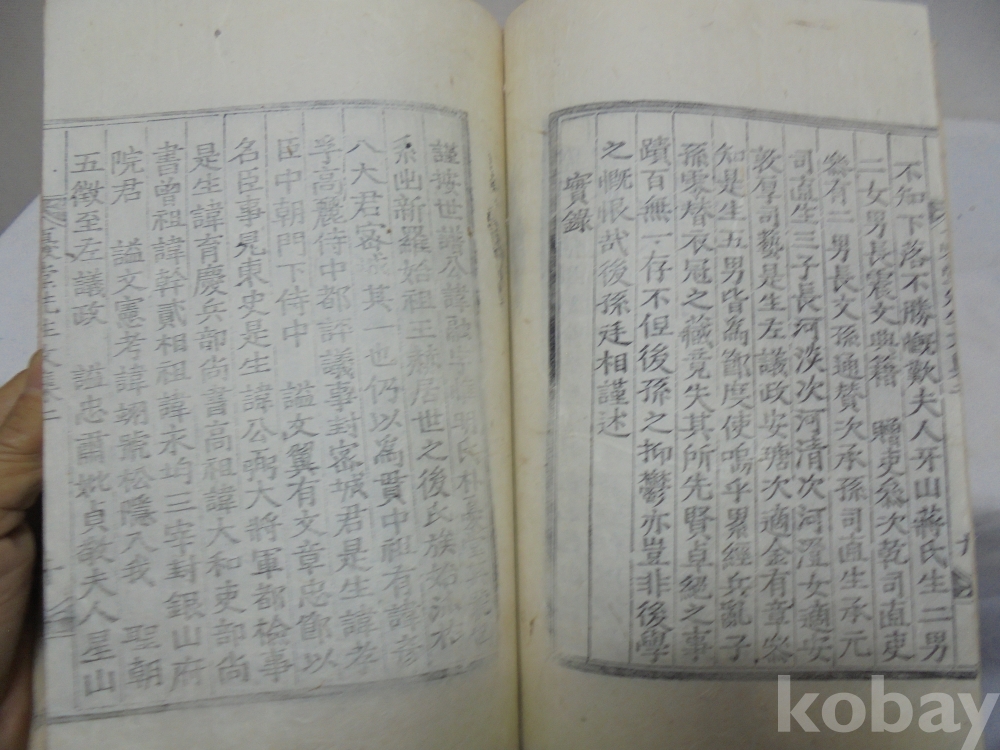 不知下落不勝慨歎夫人牙山蔣氏生二男
二女男長震文典籍 贈吏參次乾司直吏
參有二男長文孫通贊次承孫司直生承元
司直生三子長河淡次河清次河澄女適安
敦厚司藝是生左議政安瑭次適金有章參
知是生五男皆爲節度使嗚乎累經兵亂子
孫零替衣冠之藏竟失其所先賢卓絕之事
蹟百無一存不但後孫之抑鬱亦豈非後學
之慨恨哉後孫廷相謹述
實錄
謹按世譜公諱融字 明氏朴
系出新羅始祖王赫居世之後氏族始
八大君密城其一也仍以爲貫中祖有諱彥
孚高麗侍中都評議事封密城君是生諱孝
臣中朝門下侍中 謚文翼有文章忠節以
名臣事見東史是生諱公弼大將軍都檢事
是生諱育慶兵部尚書高祖諱大和吏部尚
書曾祖諱幹貳相祖諱永均三宰封銀山府
院君 謚文憲考諱翊號松隱入我 聖朝
五徵至左議政 謚忠肅妣貞敬夫人星山
先生文集
kobay